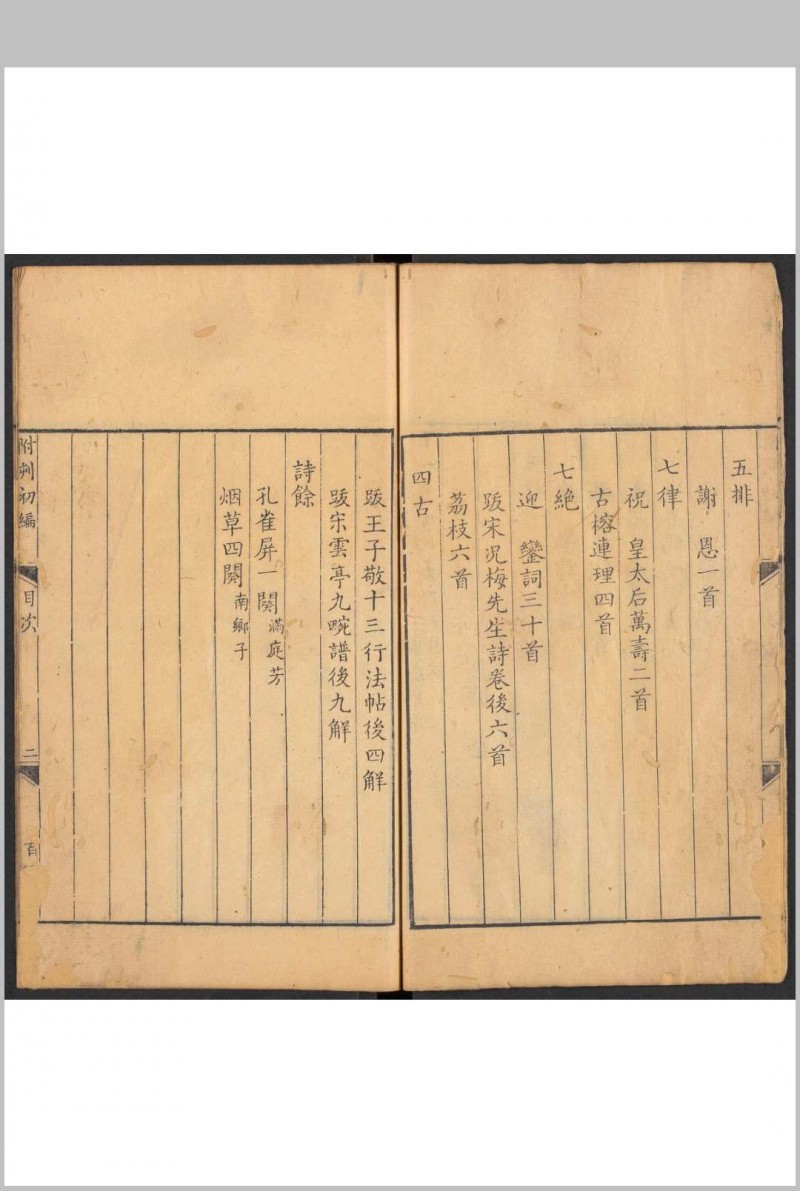 五排
謝　恩一首
七律
祝　皇太后萬壽二首
古榕連理四首
七絶
迎　鑾詞三十首
跋宋况梅先生詩卷後六首
荔枝六首
四古
跋王子敬十三行法帖後四解
跋宋雲亭九畹譜後九解
詩餘
孔雀屏一闋滿庭芳
烟草四闋南鄉子
附刻初編
目次
二
百